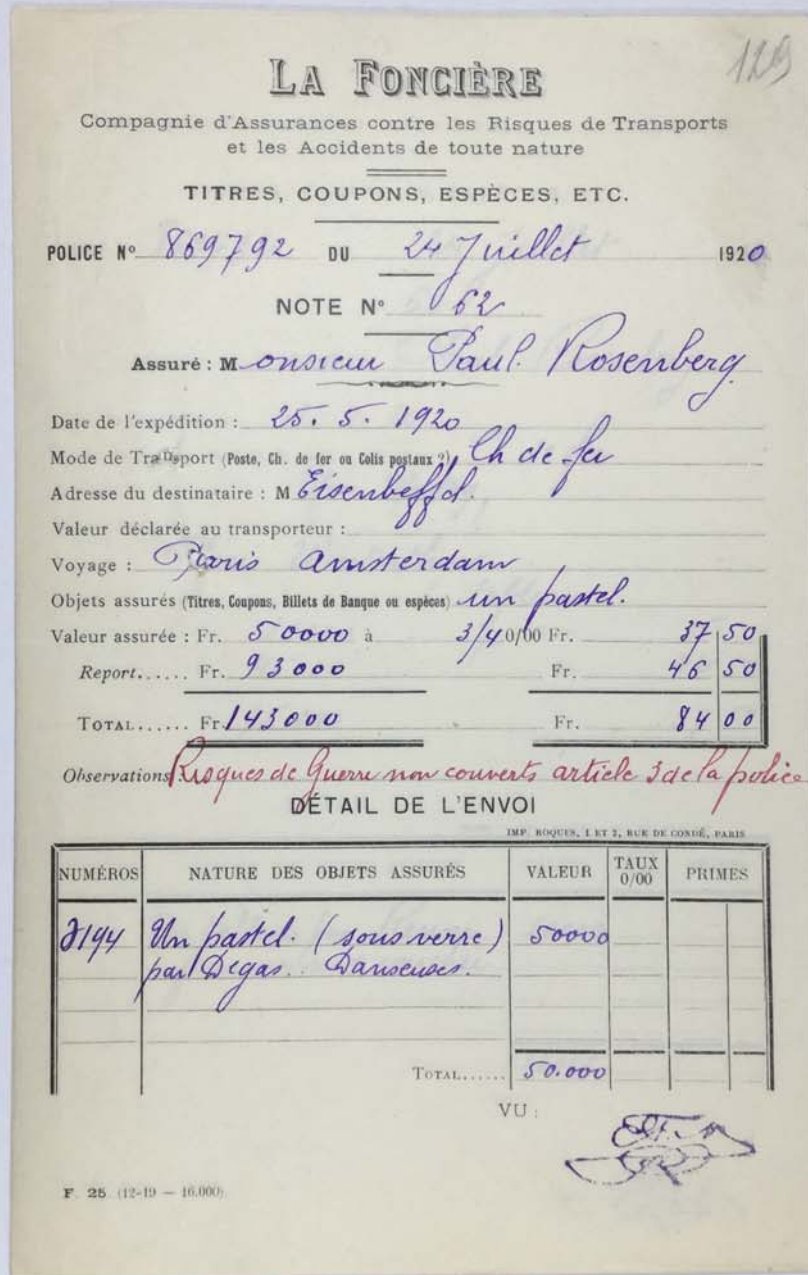 129
LA FONCIÈRE
Compagnie d'Assurances contre les Risques de Transports
et les Accidents de toute nature
TITRES, COUPONS, ESPÈCES, ETC.
POLICE N° 869792 DU 24 Juillet 1920
NOTE N° 62
Assuré : Monsieur Paul Rosenberg
Date de l'expédition : 25. 5. 1920
Mode de Transport (Poste, Ch. de fer ou Colis postaux ?) Ch de fer
Adresse du destinataire : M
Valeur déclarée au transporteur :
Voyage : Paris Amsterdam
Objets assurés (Titres, Coupons, Billets de Banque ou espèces) un pastel.
Valeur assurée : Fr. 50000 à 3/4 0/00 Fr. 37 50
Report...... Fr. 93000 Fr. 46 50
TOTAL...... Fr. 143000 Fr. 84 00
Observations Risques de Guerre non couverts article 3 de la police
DÉTAIL DE L'ENVOI
IMP. ROQUES, 1 ET 2, RUE DE CONDÉ, PARIS
NUMÉROS NATURE DES OBJETS ASSURÉS VALEUR TAUX 0/00 PRIMES
Un pastel. (sous verre) 50000
par Degas. Danseuses.
TOTAL...... 50.000
VU :
F. 25 (12-19 — 16.000)